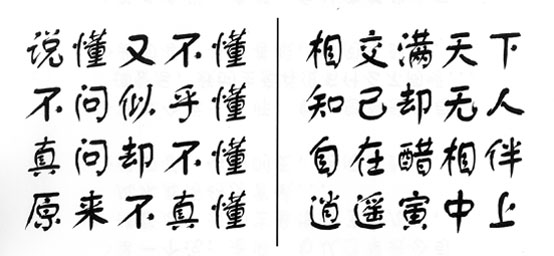 说懂又不懂
不问似乎懂
真问却不懂
原来不真懂
相交满天下
知己却无人
自在醋相伴
逍遥寅中上